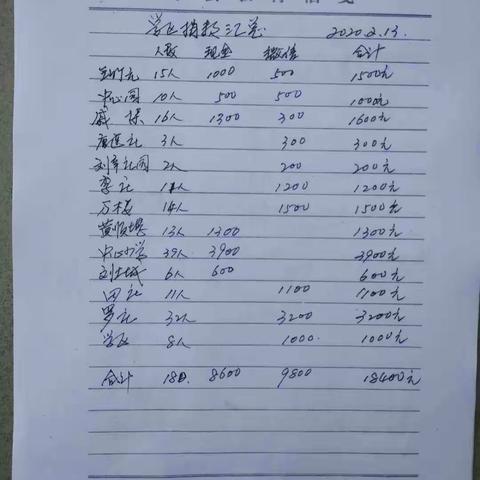 学区捐款汇总 2020.2.13.
人数 现金 微信 合计
15人 1000 500 1500元
中心园 10人 500 500 1000元
戚 16人 1300 300 1600元
3人 300 300元
刘 园 2人 200 200元
李 1200 1200元
万 14人 1500 1500元
黄 13人 1300 1300元
中心小学 39人 3900 3900元
刘 6人 600 600元
田 11人 1100 1100元
罗 32人 3200 3200元
学区 8人 1000 1000元
合计 8600 9800 18400元